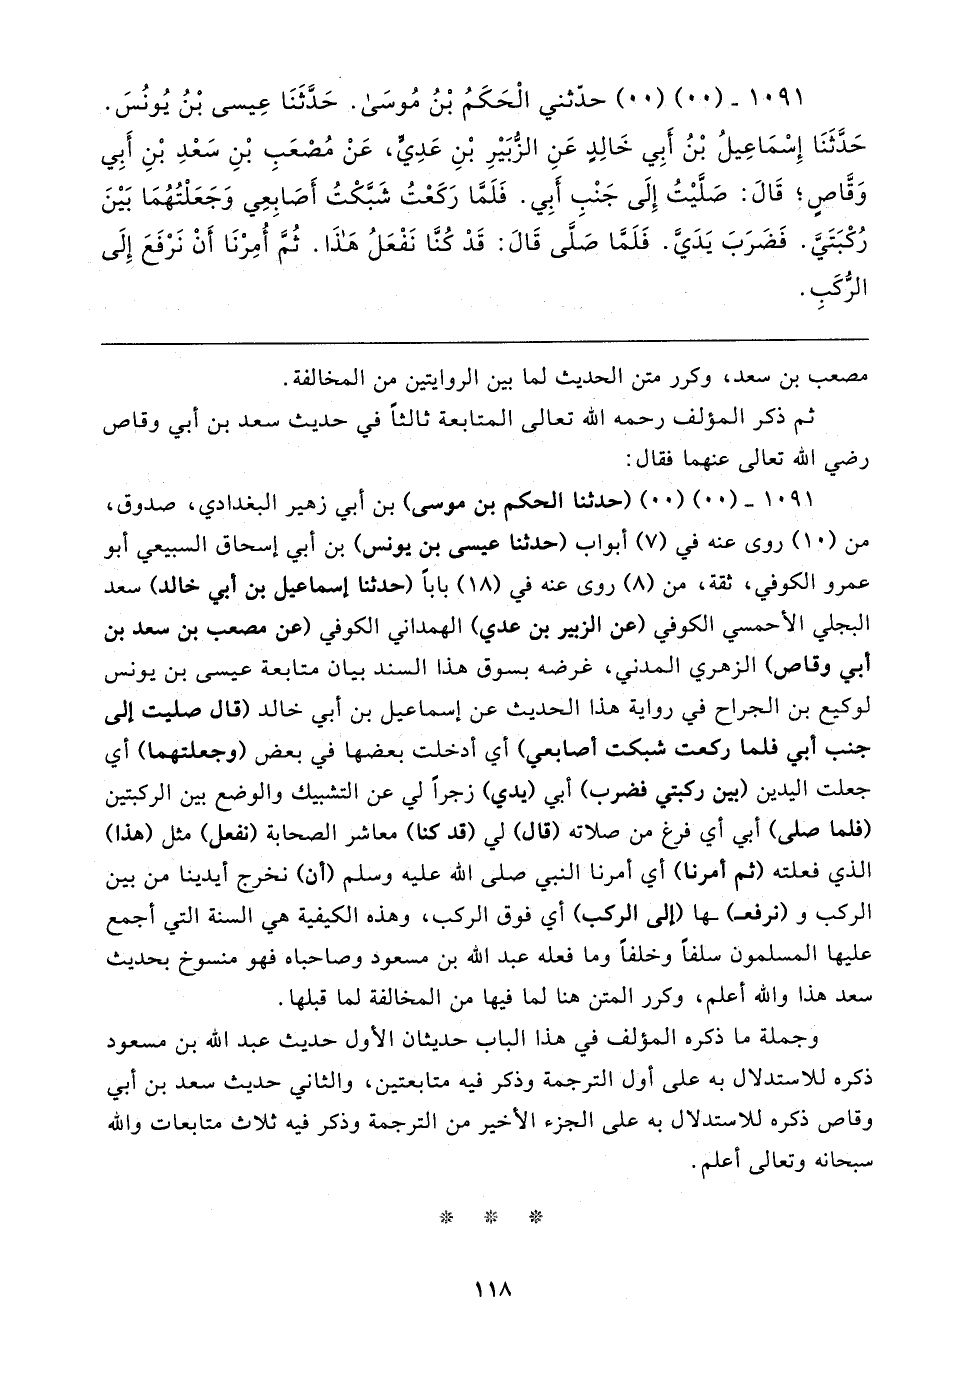 ١٠٩١ ـ (٠٠) (٠٠) حدّثني الْحَكَمُ بْنُ مُوسَىٰ. حَدَّثَنَا عِيسى بْنُ يُونُسَ.
حَدَّثَنَا إِسْمَاعِيلُ بْنُ أَبِي خَالِدٍ عَنِ الزُّبَيْرِ بْنِ عَدِيٍّ، عَنْ مُصْعَبِ بْنِ سَعْدِ بْنِ أَبِي
وَقَّاصٍ؛ قَالَ: صَلَّيْتُ إِلَى جَنْبِ أَبِي. فَلَمَّا رَكَعْتُ شَبَّكْتُ أَصَابِعِي وَجَعَلْتُهُمَا بَيْنَ
رُكْبَتَيَّ. فَضَرَبَ يَدَيَّ. فَلَمَّا صَلَّى قَالَ: قَدْ كُنَّا نَفْعَلُ هَـٰذَا. ثُمَّ أُمِرْنَا أَنْ نَرْفَعَ إِلَى
الرُّكَبِ.
مصعب بن سعد، وكرر متن الحديث لما بين الروايتين من المخالفة.
ثم ذكر المؤلف رحمه الله تعالى المتابعة ثالثاً في حديث سعد بن أبي وقاص
رضي الله تعالى عنهما فقال:
١٠٩١ ـ (٠٠) (٠٠) (حدثنا الحكم بن موسى) بن أبي زهير البغدادي، صدوق،
من (١٠) روى عنه في (٧) أبواب (حدثنا عيسى بن يونس) بن أبي إسحاق السبيعي أبو
عمرو الكوفي، ثقة، من (٨) روى عنه في (١٨) باباً (حدثنا إسماعيل بن أبي خالد) سعد
البجلي الأحمسي الكوفي (عن الزبير بن عدي) الهمداني الكوفي (عن مصعب بن سعد بن
أبي وقاص) الزهري المدني، غرضه بسوق هذا السند بيان متابعة عيسى بن يونس
لوكيع بن الجراح في رواية هذا الحديث عن إسماعيل بن أبي خالد (قال صليت إلى
جنب أبي فلما ركعت شبكت أصابعي) أي أدخلت بعضها في بعض (وجعلتهما) أي
جعلت اليدين (بين ركبتي فضرب) أبي (يدي) زجراً لي عن التشبيك والوضع بين الركبتين
(فلما صلى) أبي أي فرغ من صلاته (قال) لي (قد كنا) معاشر الصحابة (نفعل) مثل (هذا)
الذي فعلته (ثم أمرنا) أي أمرنا النبي صلى الله عليه وسلم (أن) نخرج أيدينا من بين
الركب و (نرفعـ) ـها (إلى الركب) أي فوق الركب، وهذه الكيفية هي السنة التي أجمع
عليها المسلمون سلفاً وخلفاً وما فعله عبد الله بن مسعود وصاحباه فهو منسوخ بحديث
سعد هذا والله أعلم، وكرر المتن هنا لما فيها من المخالفة لما قبلها.
وجملة ما ذكره المؤلف في هذا الباب حديثان الأول حديث عبد الله بن مسعود
ذكره للاستدلال به على أول الترجمة وذكر فيه متابعتين، والثاني حديث سعد بن أبي
وقاص ذكره للاستدلال به على الجزء الأخير من الترجمة وذكر فيه ثلاث متابعات والله
سبحانه وتعالى أعلم.
* * *
١١٨